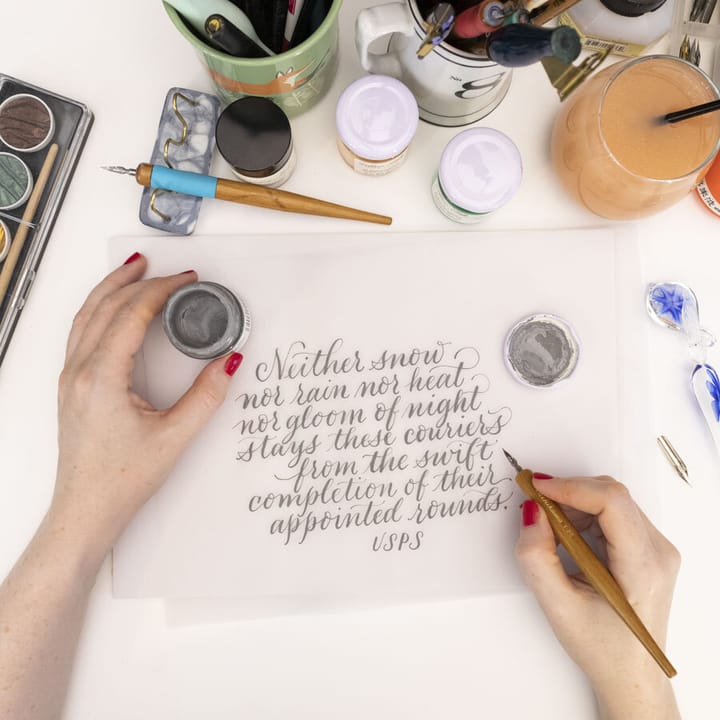 Neither snow
nor rain nor heat
nor gloom of night
stays these couriers
from the swift
completion of their
appointed rounds.
USPS